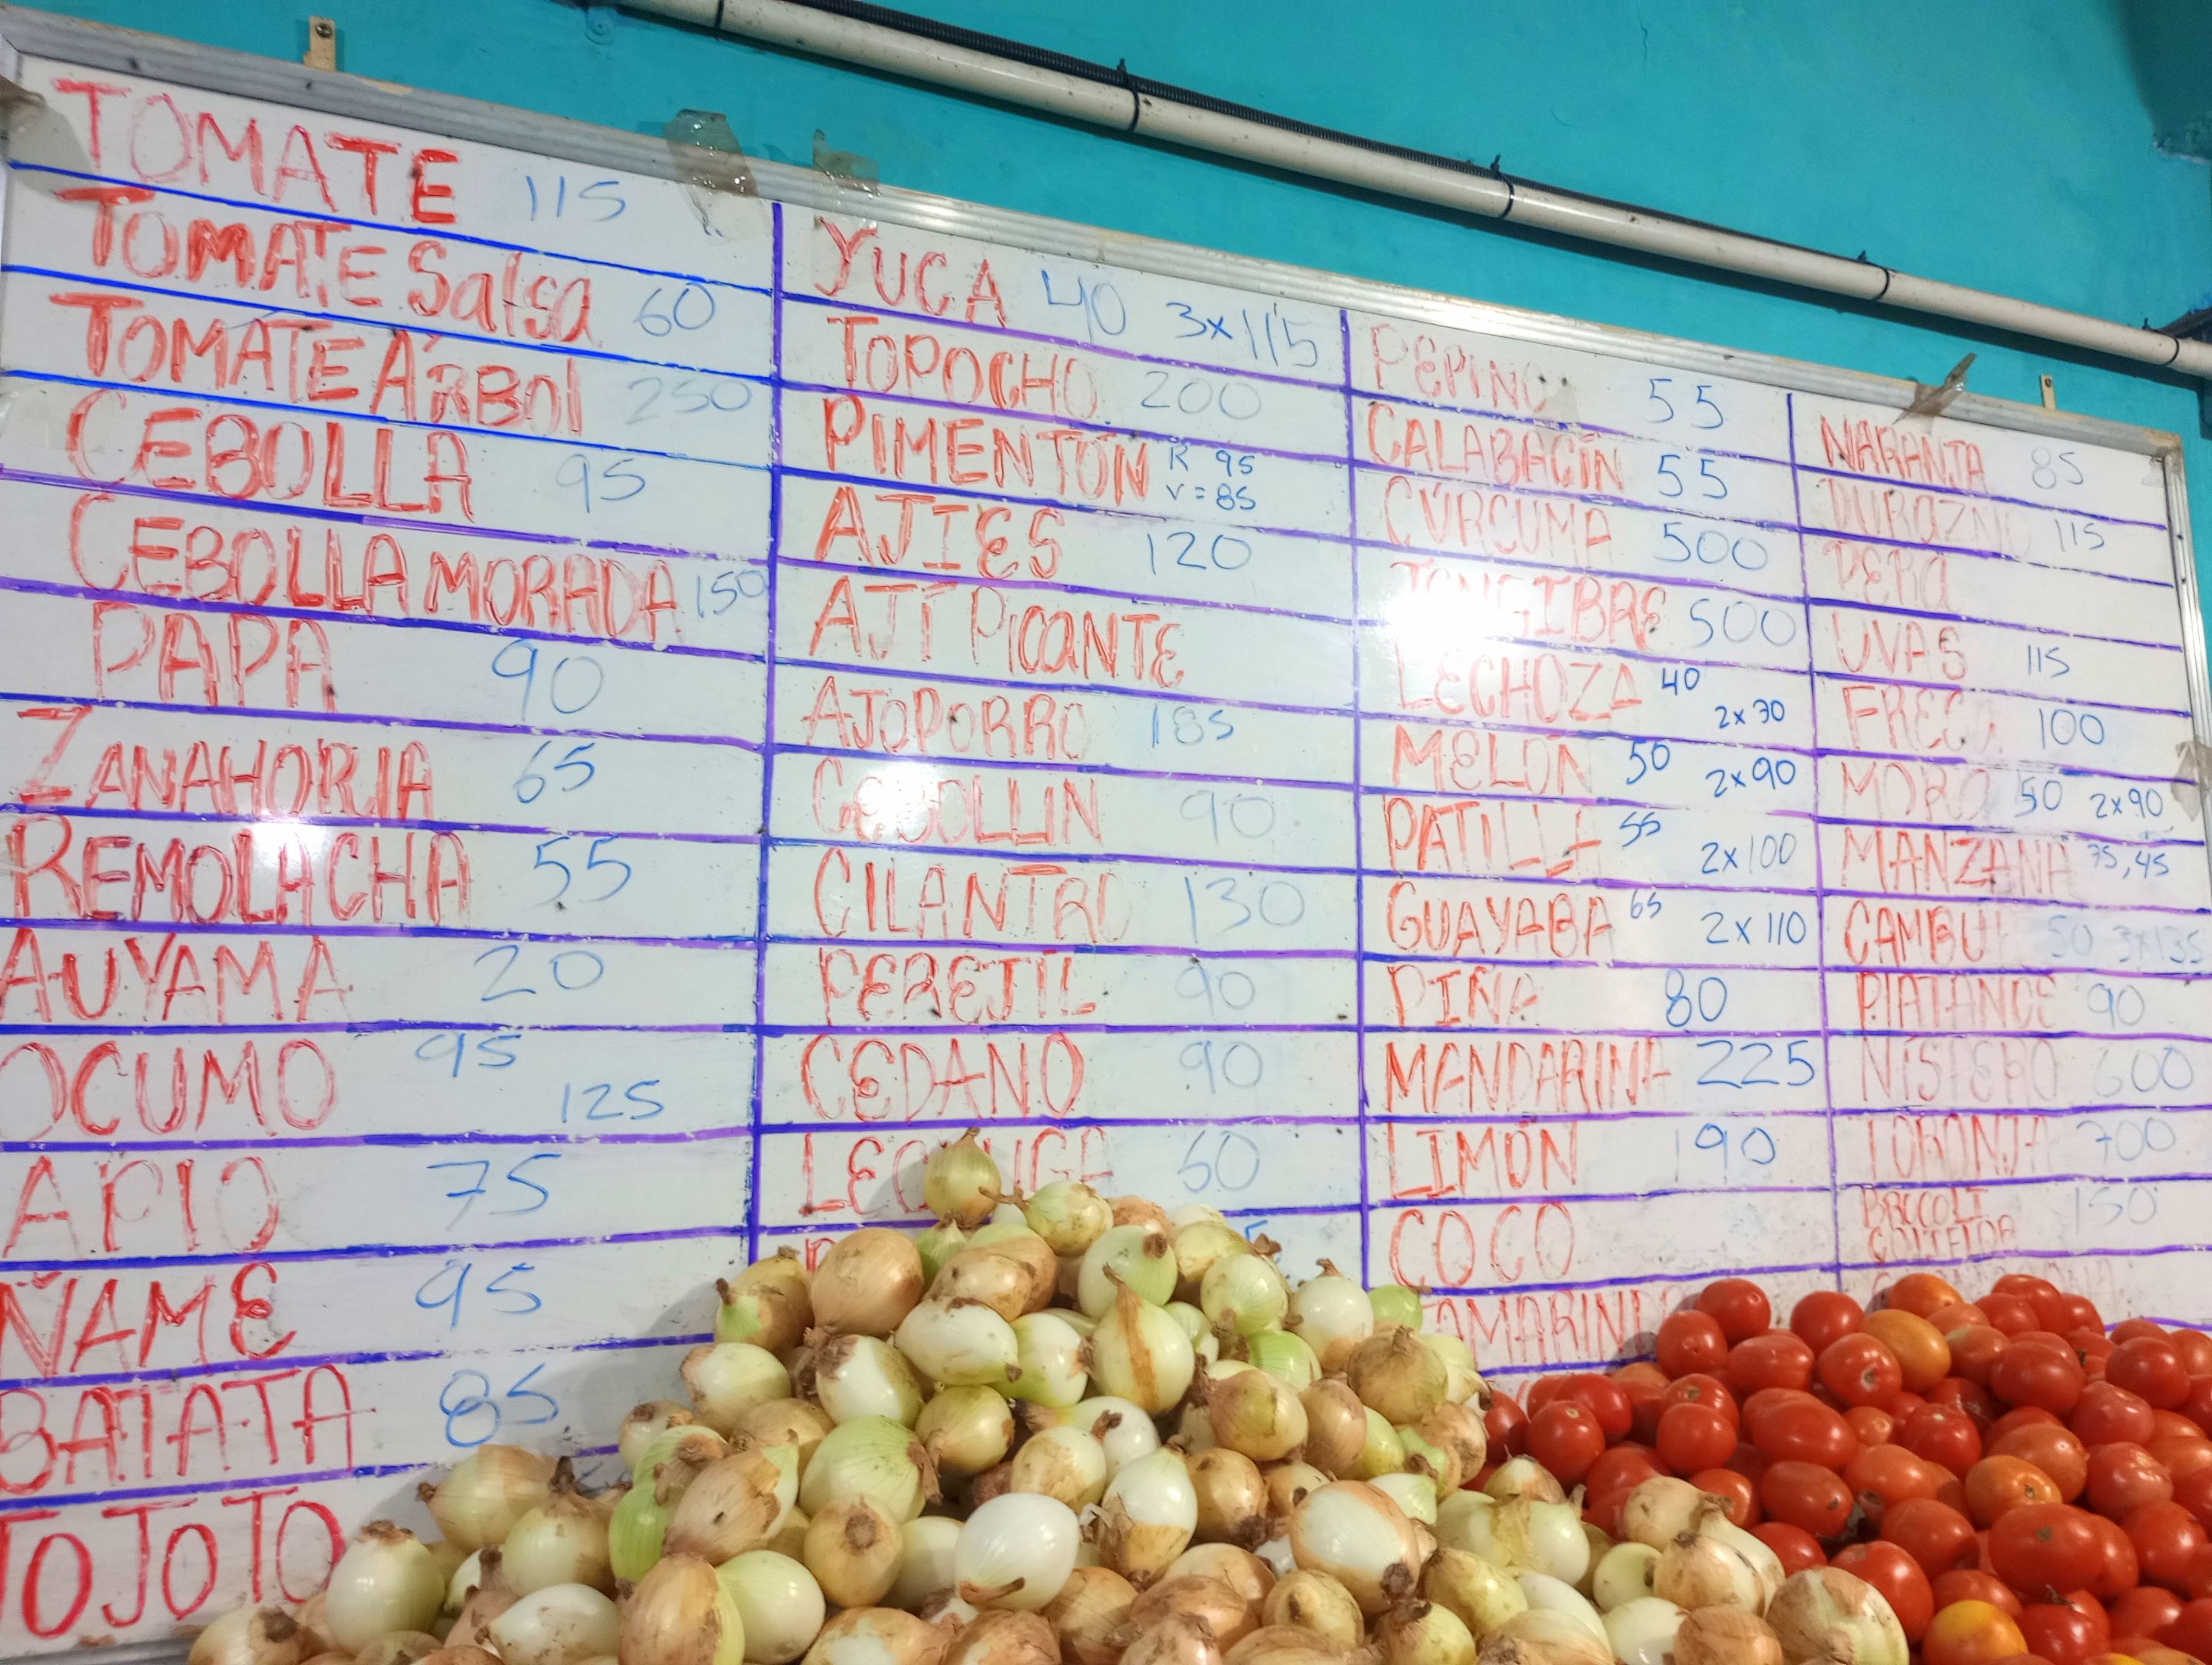 TOMATE 115
TOMATE Salsa 60
TOMATE ÁRBOl 250
CEBOLLA 95
CEBOLLA MORADA 150
PAPA 90
ZANAHORIA 65
REMOLACHA 55
AUYAMA 20
OCUMO 95
125
APIO 75
ÑAME 95
BATATA 85
JOJOTO
YUCA 40 3x115
TOPOCHO 200
PIMENTÓN R 95
V=85
AJIES 120
AJÍ PICANTE
AJOPORRO 185
CEBOLLIN 90
CILANTRO 130
PEREJIL 90
CEDANO 90
60
PEPINO 55
CALABACÍN 55
CÚRCUMA 500
JENGIBRE 500
LECHOZA 40
2x70
MELÓN 50
2x90
PATILLA 55
2x100
GUAYABA 65
2x110
PIÑA 80
MANDARINA 225
LIMÓN 190
COCO
TAMARINDO
NARANJA 85
DUROZNO 115
PERA
UVAS 115
100
MORO 50 2x90
MANZANA 75,45
CAMBUR 50 3x135
PLATANOE 90
NISPERO 600
TORONJA 700
BROCOLI 150
COLIFLOR